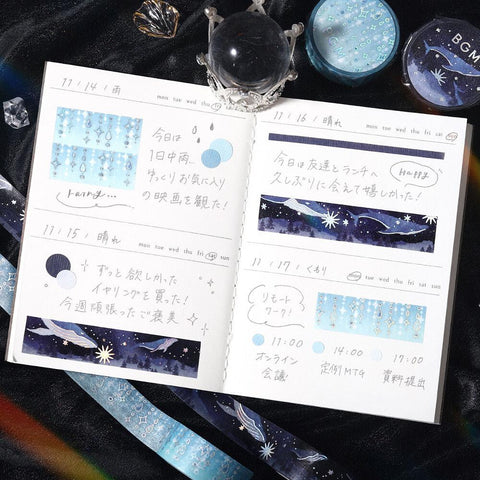 11 / 14 / 雨
mon tue wed thu fri sat sun
今日は
1日中雨…
ゆっくりお気に入り
の映画を観た!
rainy...
11 / 15 / 晴れ
mon tue wed thu fri sat sun
ずっと欲しかった
イヤリングを買った!
今週頑張ったご褒美
11 / 16 / 晴れ
mon tue wed thu fri sat sun
今日は友達とランチへ
久しぶりに会えて嬉しかった!
happy
11 / 17 / くもり
mon tue wed thu fri sat sun
リモート
ワーク!
11:00
オンライン
会議
14:00
定例MTG
17:00
資料提出
BGM